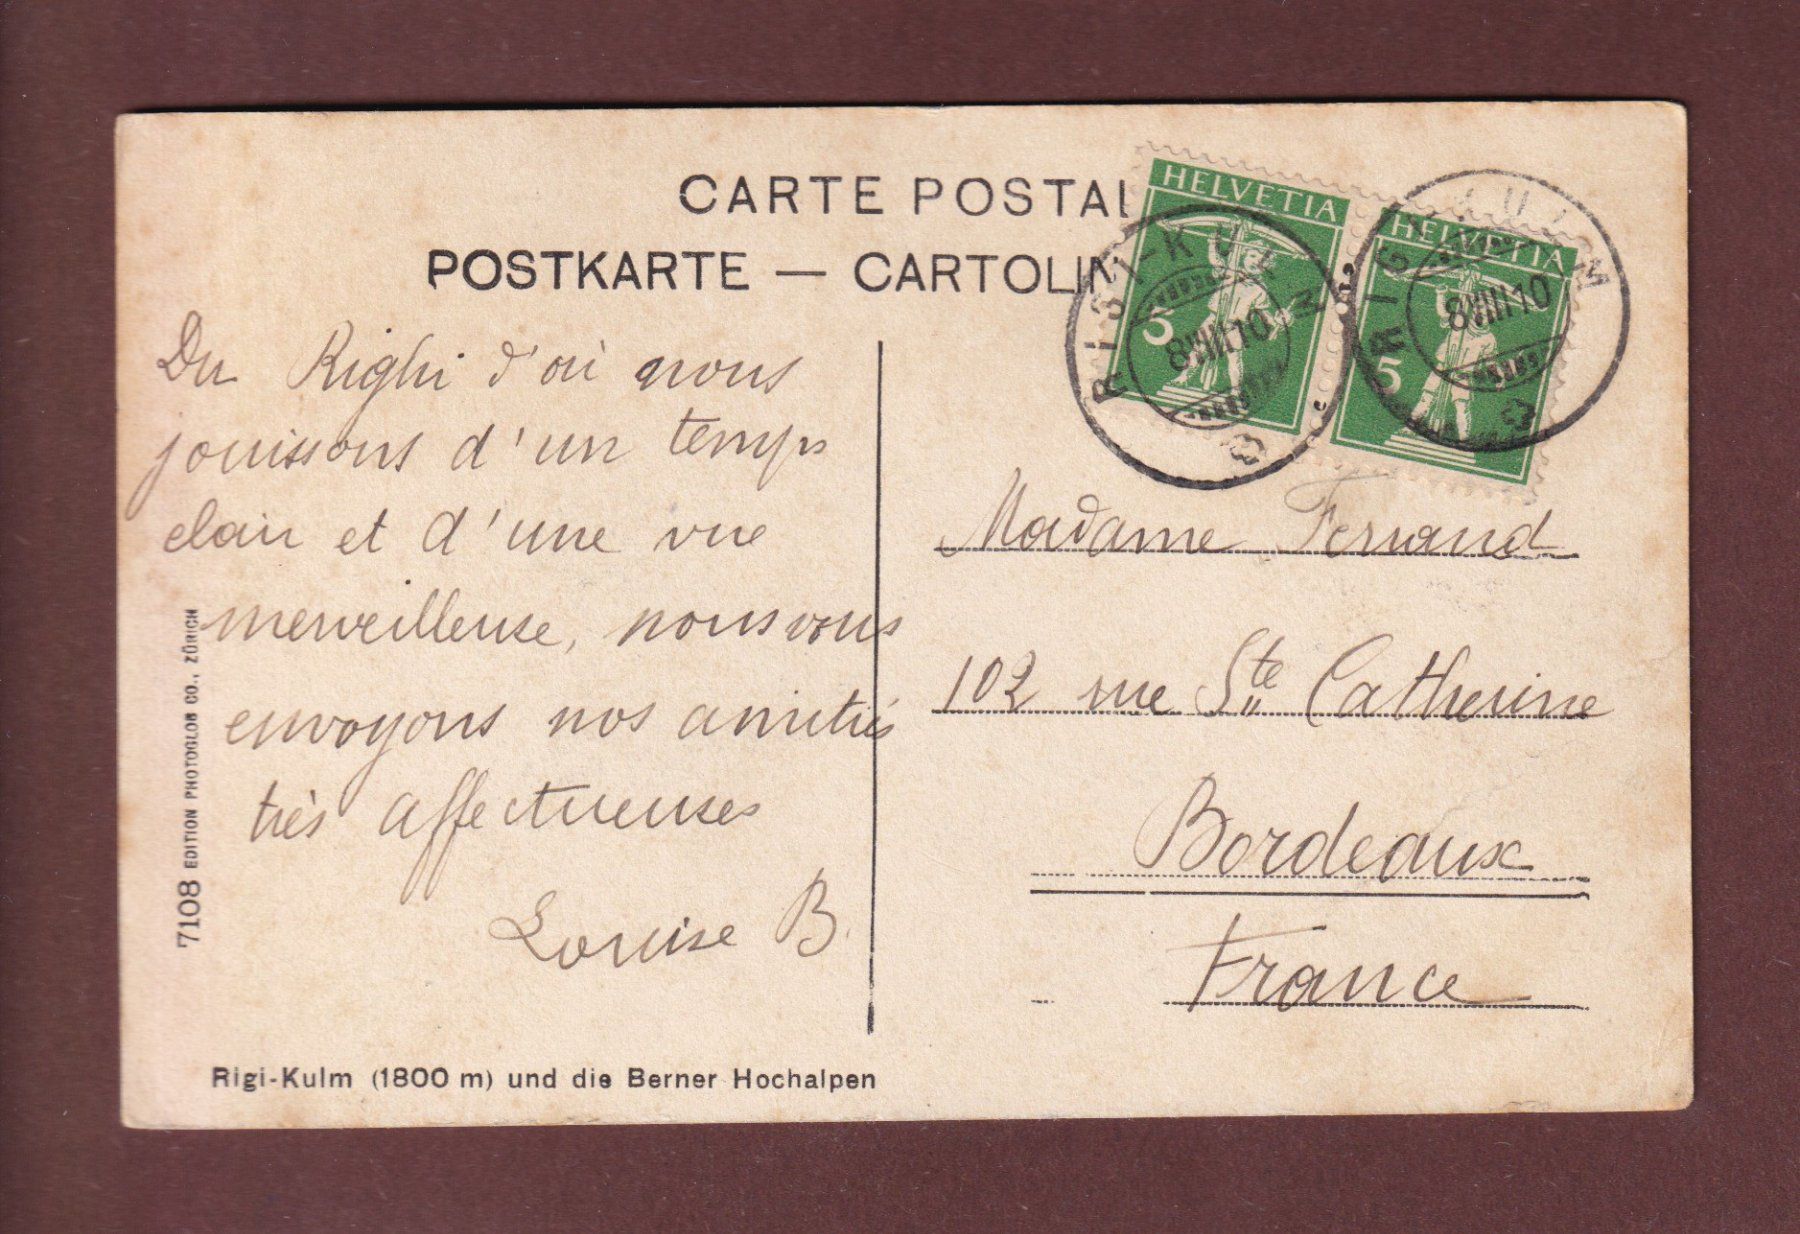 CARTE POSTAL
POSTKARTE — CARTOLIN
HELVETIA
5
HELVETIA
5
RIGI-KULM
8.VIII.10
RIGI-KULM
8.VIII.10
Du Righi d'où nous
jouissons d'un temps
clair et d'une vue
merveilleuse, nous vous
envoyons nos amitiés
très affectueuses
Louise B.
Madame Ferrand
102 rue Ste Catherine
Bordeaux
France
7108 EDITION PHOTOGLOB CO., ZÜRICH
Rigi-Kulm (1800 m) und die Berner Hochalpen